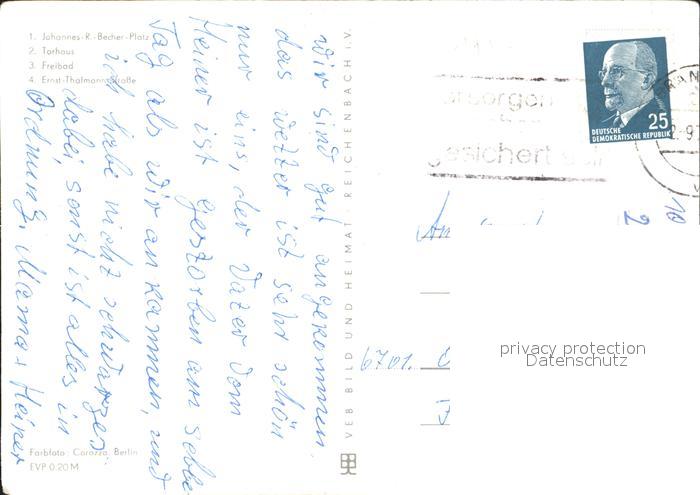 1. Johannes-R.-Becher-Platz
2. Torhaus
3. Freibad
4. Ernst-Thälmann-Straße
Wir sind gut angekommen.
das wetter ist sehr schön
nur eins, der Vater vom
Heiner ist gestorben am selbe
Tag als wir ankammen, und
ich habe nicht schwarzes
dabei, sonst ist alles in
Ordnung. Mama + Heiner
Farbfoto: Carozza, Berlin
EVP 0.20 M
VEB BILD UND HEIMAT · REICHENBACH I.V.
gesichert sein
25
DEUTSCHE
DEMOKRATISCHE REPUBLIK
An
6701.
privacy protection
Datenschutz